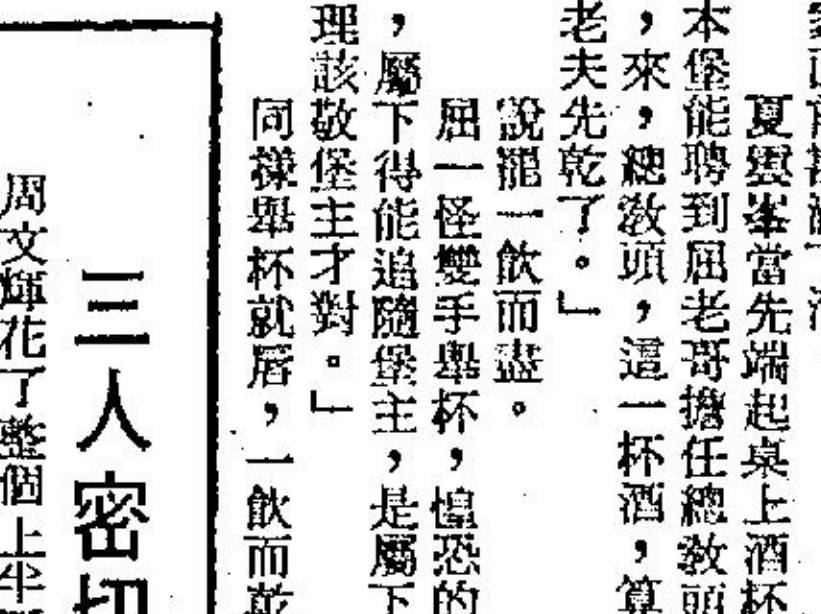 夏雲峯當先端起桌上酒杯
本堡能聘到屈老哥擔任總教頭
，來，總教頭，這一杯酒，算
老夫先乾了。」
說罷一飲而盡。
屈一怪雙手舉杯，惶恐的
，屬下得能追隨堡主，是屬下
理該敬堡主才對。」
同樣舉杯就唇，一飲而乾
三人密切
周文輝花了整個上半